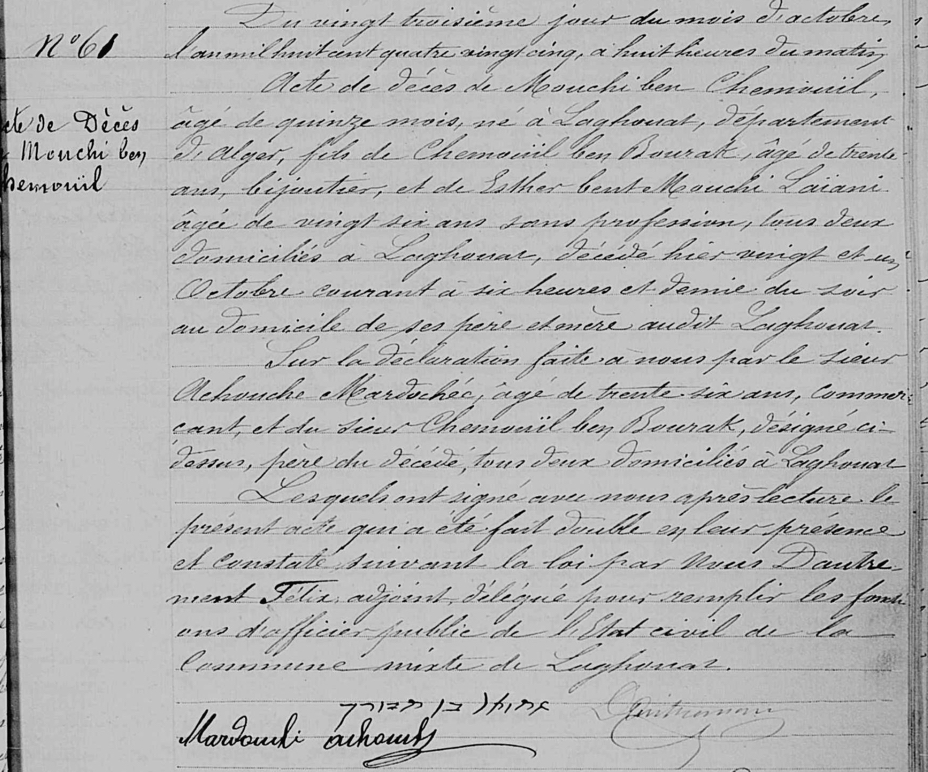 Du vingt troisième jour du mois d'octobre,
N° 61
l'an mil huit cent quatre vingt cinq, à huit heures du matin,
Acte de décès de Mouchi ben Chemouïl,
âgé de quinze mois, né à Laghouat, département
cte de Décès
Mouchi ben
hemouïl
d'Alger, fils de Chemouïl ben Bourak, âgé de trente
ans, bijoutier, et de Esther bent Mouchi Laïani
âgée de vingt six ans sans profession, tous deux
domiciliés à Laghouat, décédé hier vingt et un
Octobre courant à six heures et demie du soir
au domicile de ses père et mère audit Laghouat.
Sur la déclaration faite à nous par le sieur
Achouche Mardochée, âgé de trente six ans, commer-
çant, et du sieur Chemouïl ben Bourak, désigné ci-
dessus, père du décédé, tous deux domiciliés à Laghouat
Lesquels ont signé avec nous après lecture le
présent acte qui a été fait double en leur présence
et constaté suivant la loi par Nous Dautre-
ment Félix, adjoint, délégué pour remplir les foncti
ons d'officier public de l'Etat civil de la
Commune mixte de Laghouat.
בן
Mardouchi